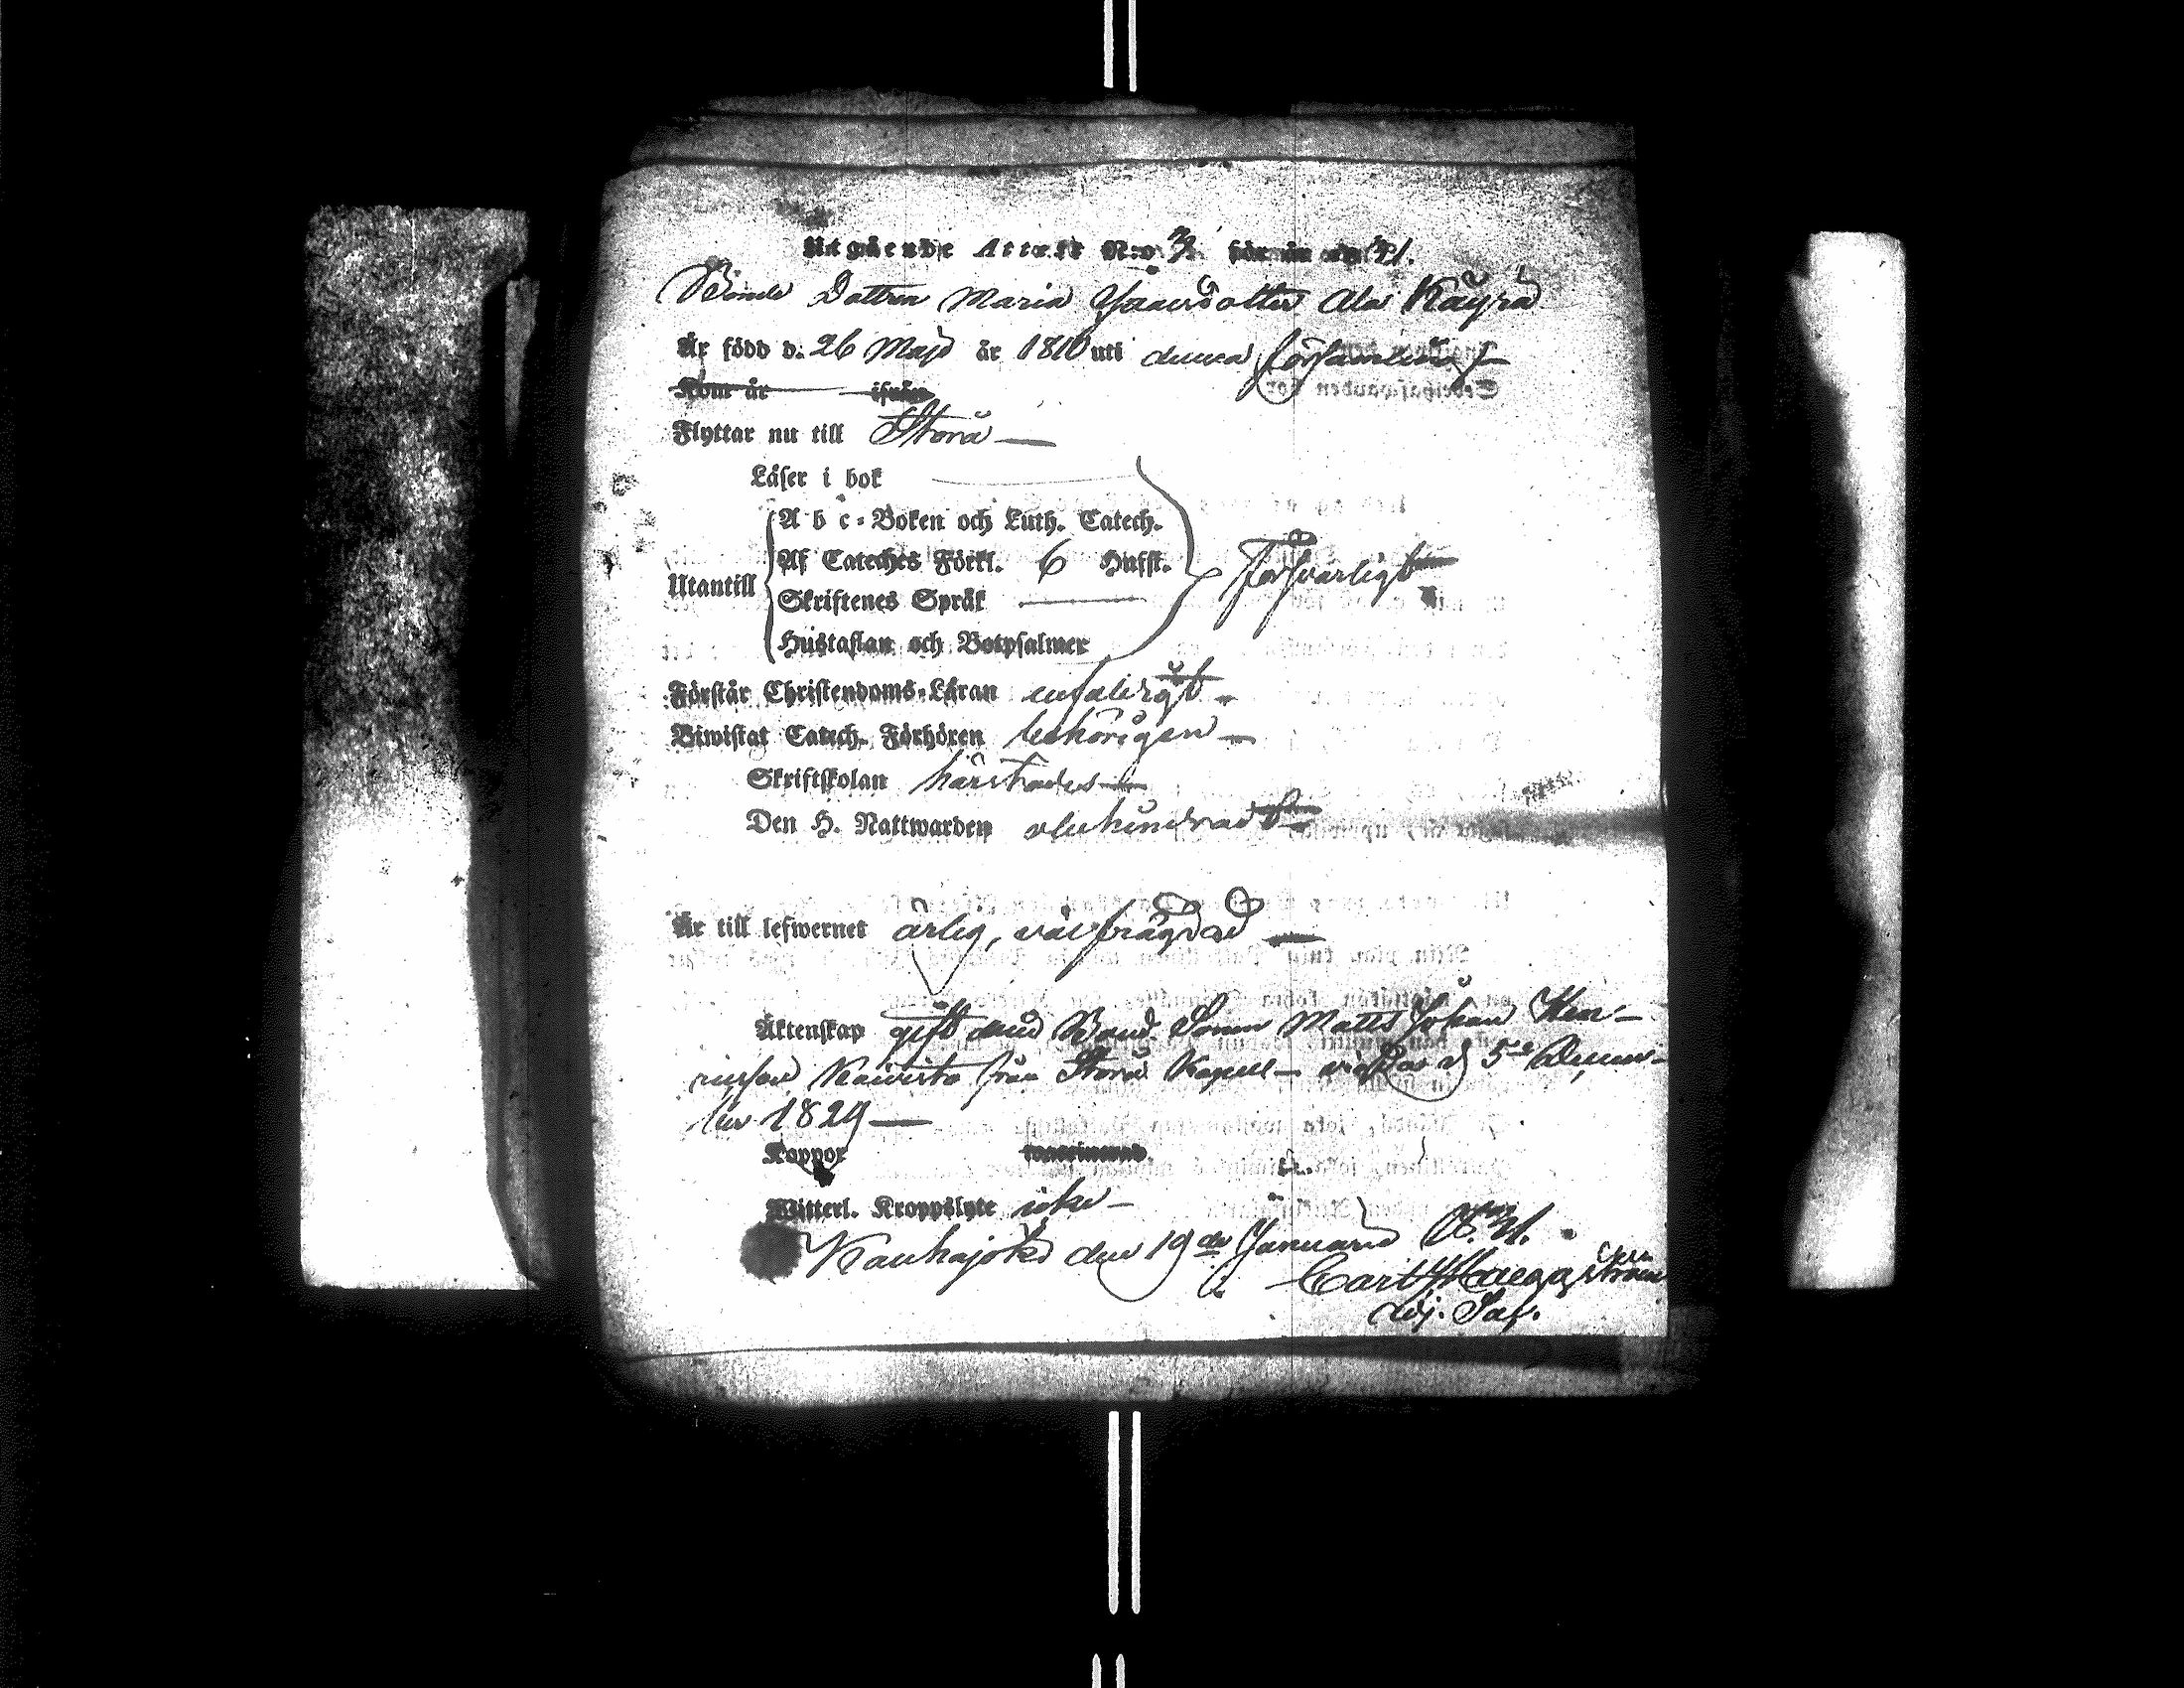 Utgående Attest N:o 2 för år 1841.
Bonde Dottren Maria Isaacsdotter Ala Käyrä
Är född d. 26 Maji år 1810 uti denna församling
Kom år ifrån
Flyttar nu till Storå
Läser i bok
A b c-Boken och Luth. Catech.
Utantill Af Cateches Förkl. 6 Hufst. Försvarligt
Skriftenes Språk
Hustaflan och Botpsalmer
Förstår Christendoms-Läran enfaldigt
Biwistat Catech. Förhören behörigen
Skriftskolan härstädes
Den H. Nattwarden obehindrad
Är till lefwernet ärlig, välfrägdad
Äktenskap gift med Bond. Sonen Matts Johan Hen-
ricsson Koivisto från Storå Kapell vigdas d 5te Decem-
ber 1829
Koppor
Witterl. Kroppslyte icke
Kauhajoki den 19de Januarii
Carl Haeggström
Adj. Sac.